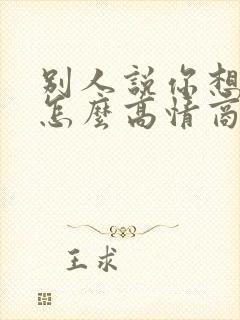 別人說你想
怎麼高情商
王求